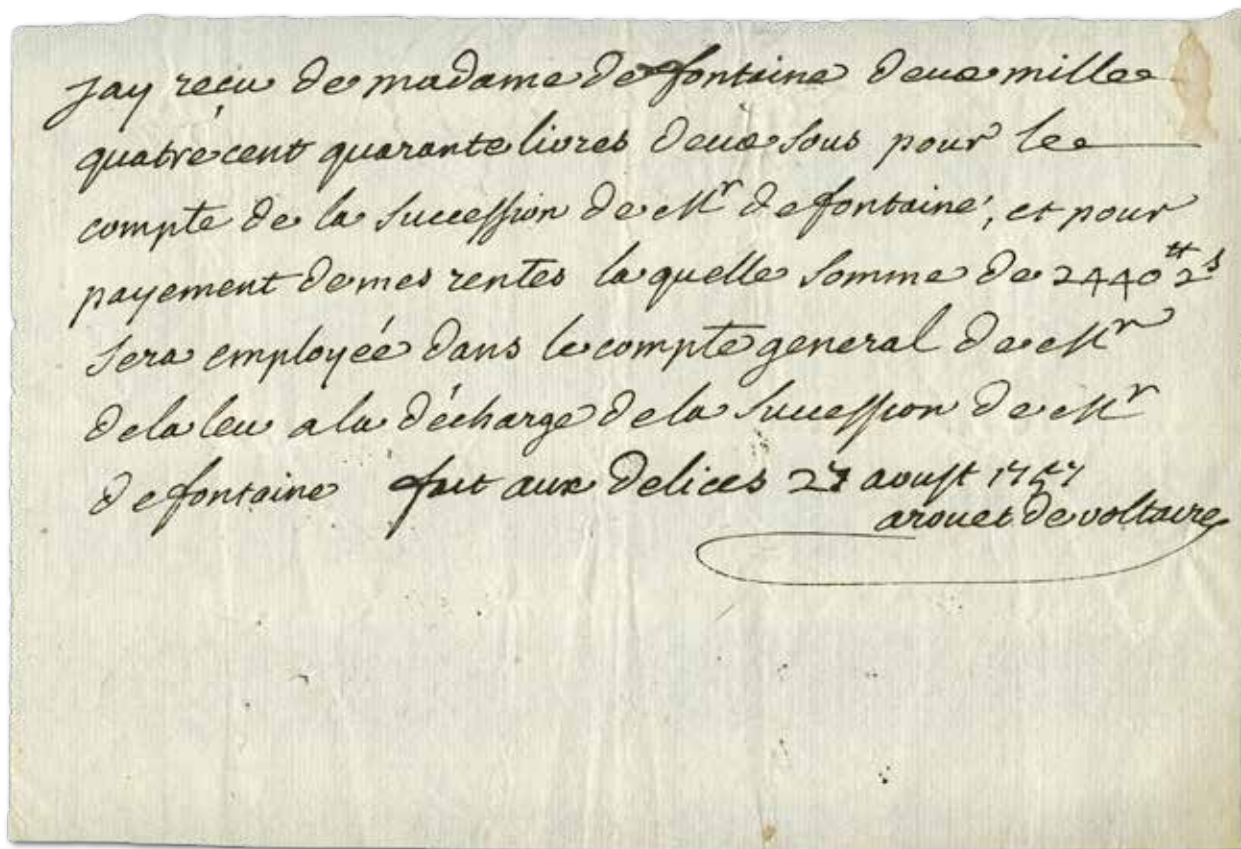 jay recu de madame de fontaine deux mille
quatre cent quarante livres deux sous pour le
compte de la succession de Mr de fontaine, et pour
payement de mes rentes la quelle somme de 2440 tt 2 s
sera employée dans le compte general de Mr
de la leu a la décharge de la succession de Mr
de fontaine fait aux delices 27 aoust 1757
arouet de voltaire